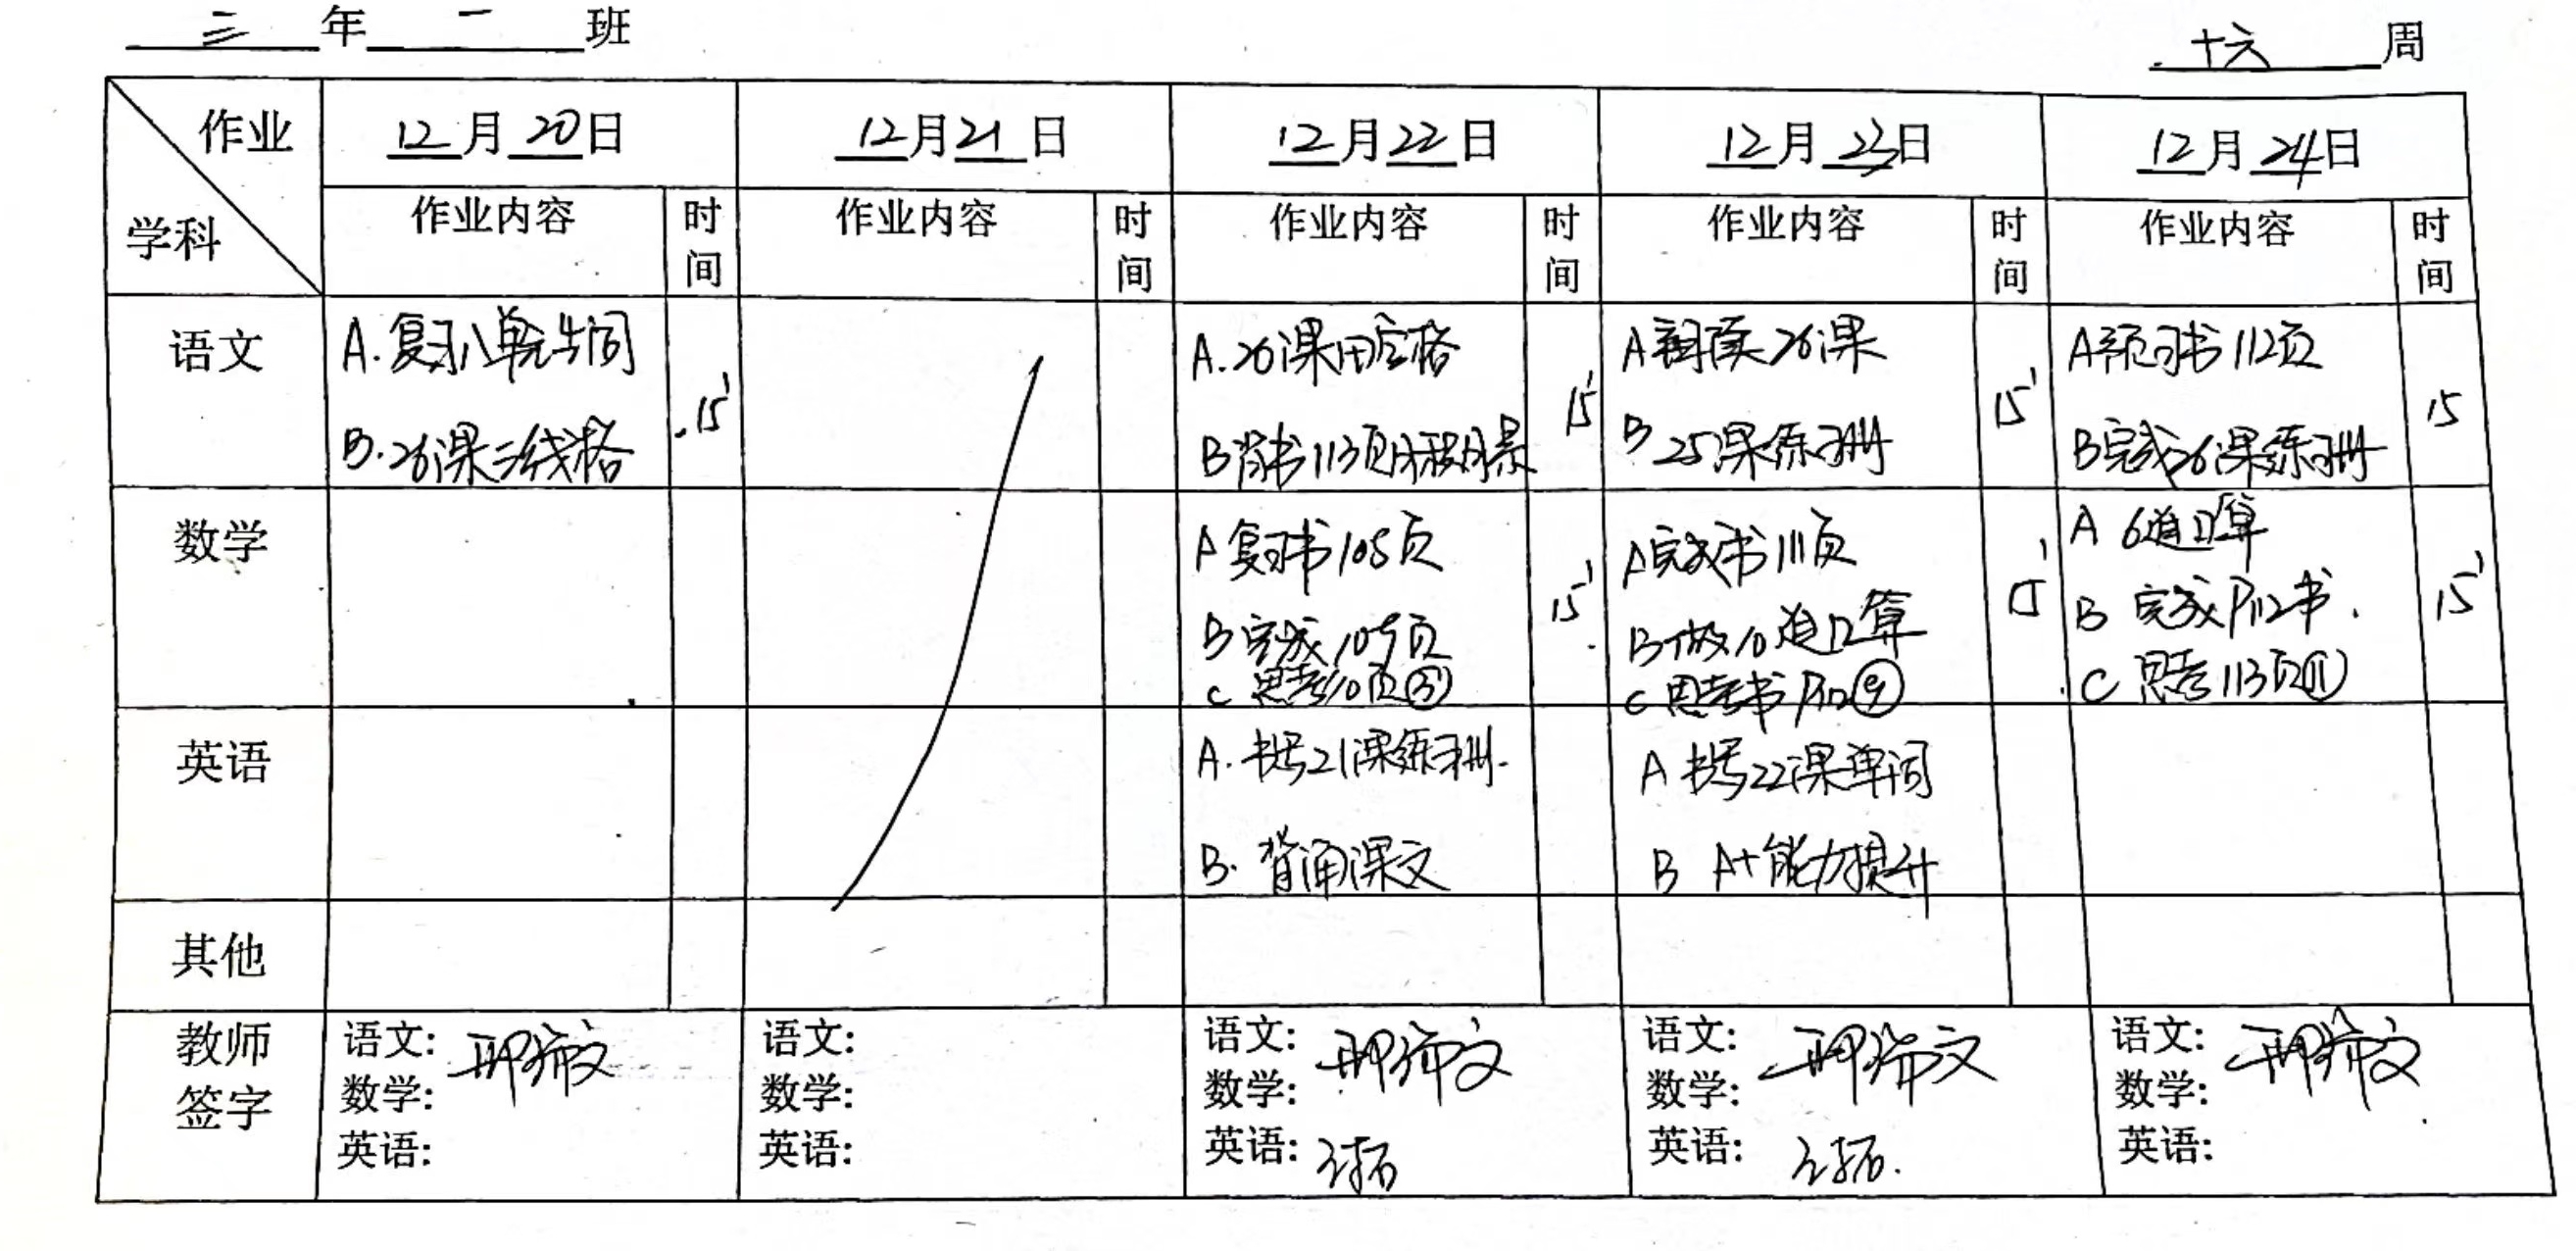 三年一班
十六周
作业
学科
12月20日
12月21日
12月22日
12月23日
12月24日
作业内容 时间
作业内容 时间
作业内容 时间
作业内容 时间
作业内容 时间
语文
A.复习八单元生词
B.26课三线格
15'
A.26课田字格
B背书113页
15'
A朗读26课
B 25课练习册
15'
A预习书112页
B完成26课练习册
15
数学
A复习书108页
B完成109页
C 思考110页
15'
A完成书111页
B做10道口算
C 思考书P112⑨
15'
A 6道口算
B 完成P112书.
C 思考113页⑪
15'
英语
A.书写21课练习册.
B.背诵课文
A 书写22课单词
B A+能力提升
其他
教师
签字
语文:
数学:
英语:
语文:
数学:
英语:
语文:
数学:
英语:
语文:
数学:
英语:
语文:
数学:
英语: